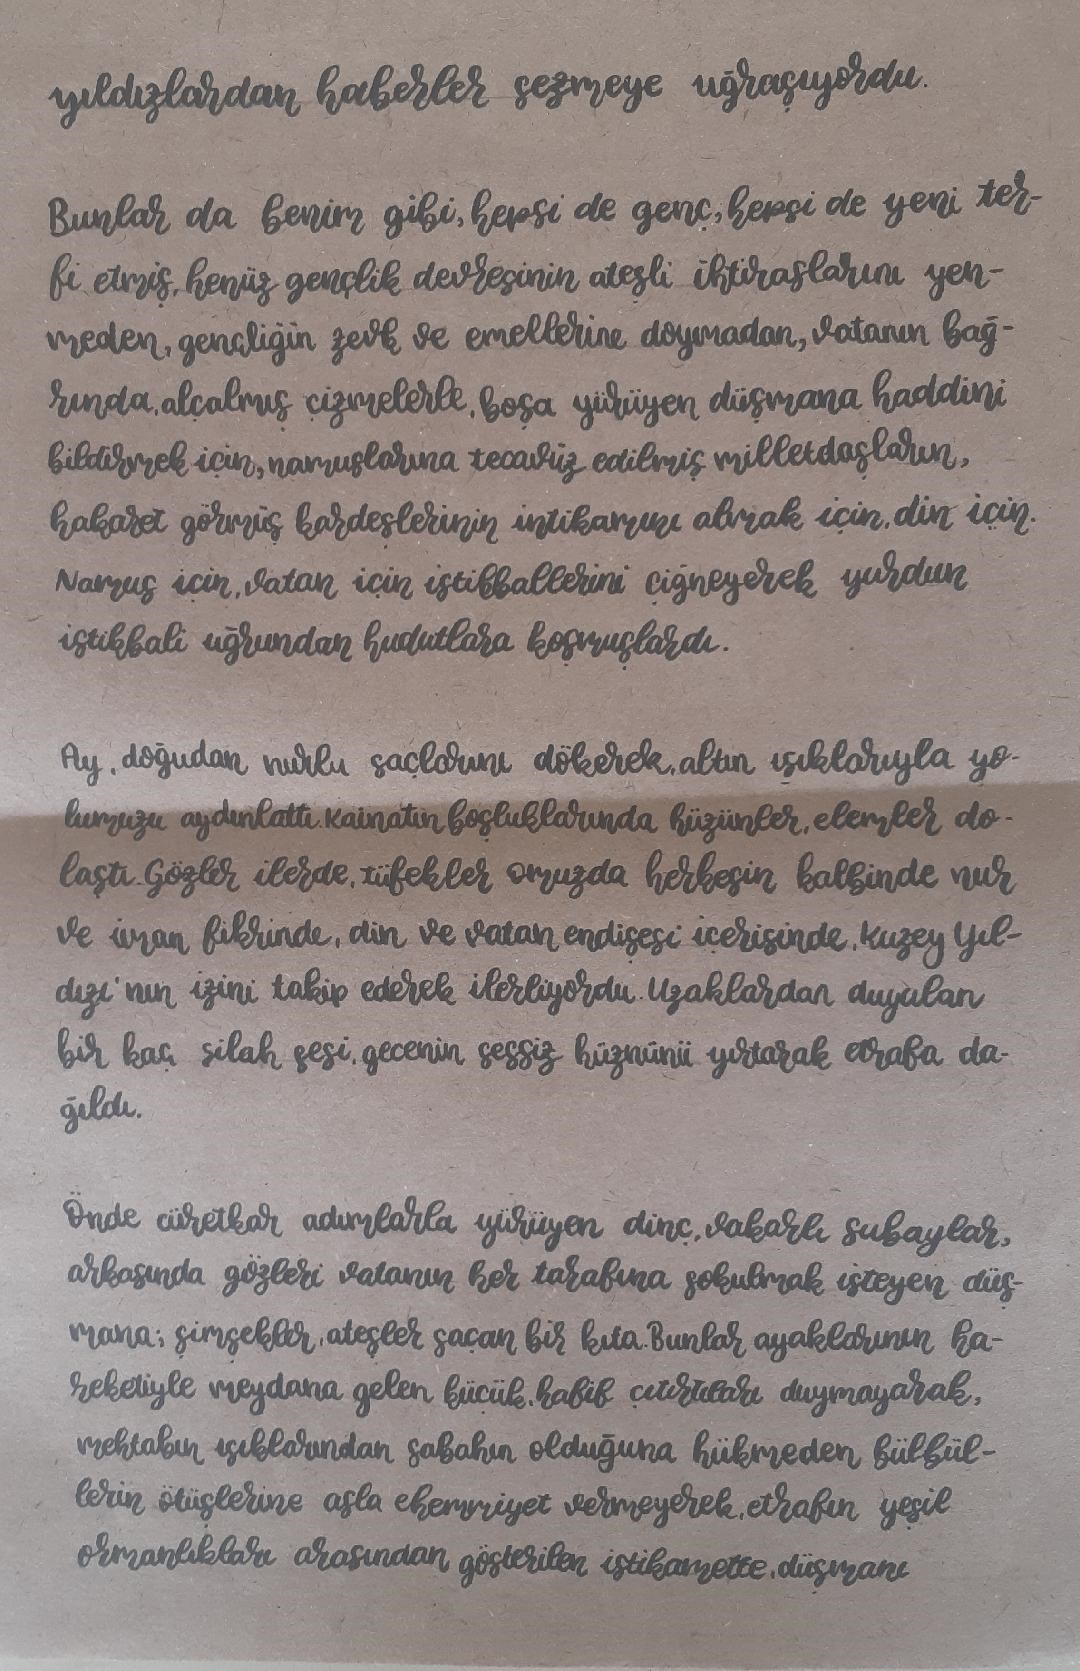 yıldızlardan haberler sezmeye uğraşıyordu.
Bunlar da benim gibi, hepsi de genç, hepsi de yeni ter-
fi etmiş, henüz gençlik devresinin ateşli ihtiraslarını yen-
meden, gençliğin zevk ve emellerine doymadan, vatanın bağ-
rında, alçalmış çizmelerle, boşa yürüyen düşmana haddini
bildirmek için, namuslarına tecavüz edilmiş milletdaşların,
hakaret görmüş kardeşlerinin intikamını almak için, din için.
Namus için, vatan için istikballerini çiğneyerek yurdun
istikbali uğrundan hudutlara koşmuşlardı.
Ay, doğudan nurlu saçlarını dökerek, altın ışıklarıyla yo-
lumuzu aydınlattı. Kainatın boşluklarında hüzünler, elemler do-
laştı. Gözler ilerde, tüfekler omuzda herkesin kalbinde nur
ve iman fikrinde, din ve vatan endişesi içerisinde, Kuzey Yıl-
dızı'nın izini takip ederek ilerliyordu. Uzaklardan duyulan
bir kaç silah sesi, gecenin sessiz hüznünü yırtarak etrafa da-
ğıldı.
Önde cüretkar adımlarla yürüyen dinç, vakarlı subaylar,
arkasında gözleri vatanın her tarafına sokulmak isteyen düş-
mana; şimşekler, ateşler saçan bir kıta. Bunlar ayaklarının ha-
reketiyle meydana gelen küçük, hafif çıtırtıları duymayarak,
mehtabın ışıklarından sabahın olduğuna hükmeden bülbül-
lerin ötüşlerine asla ehemmiyet vermeyerek, etrafın yeşil
ormanlıkları arasından gösterilen istikamette, düşmanı